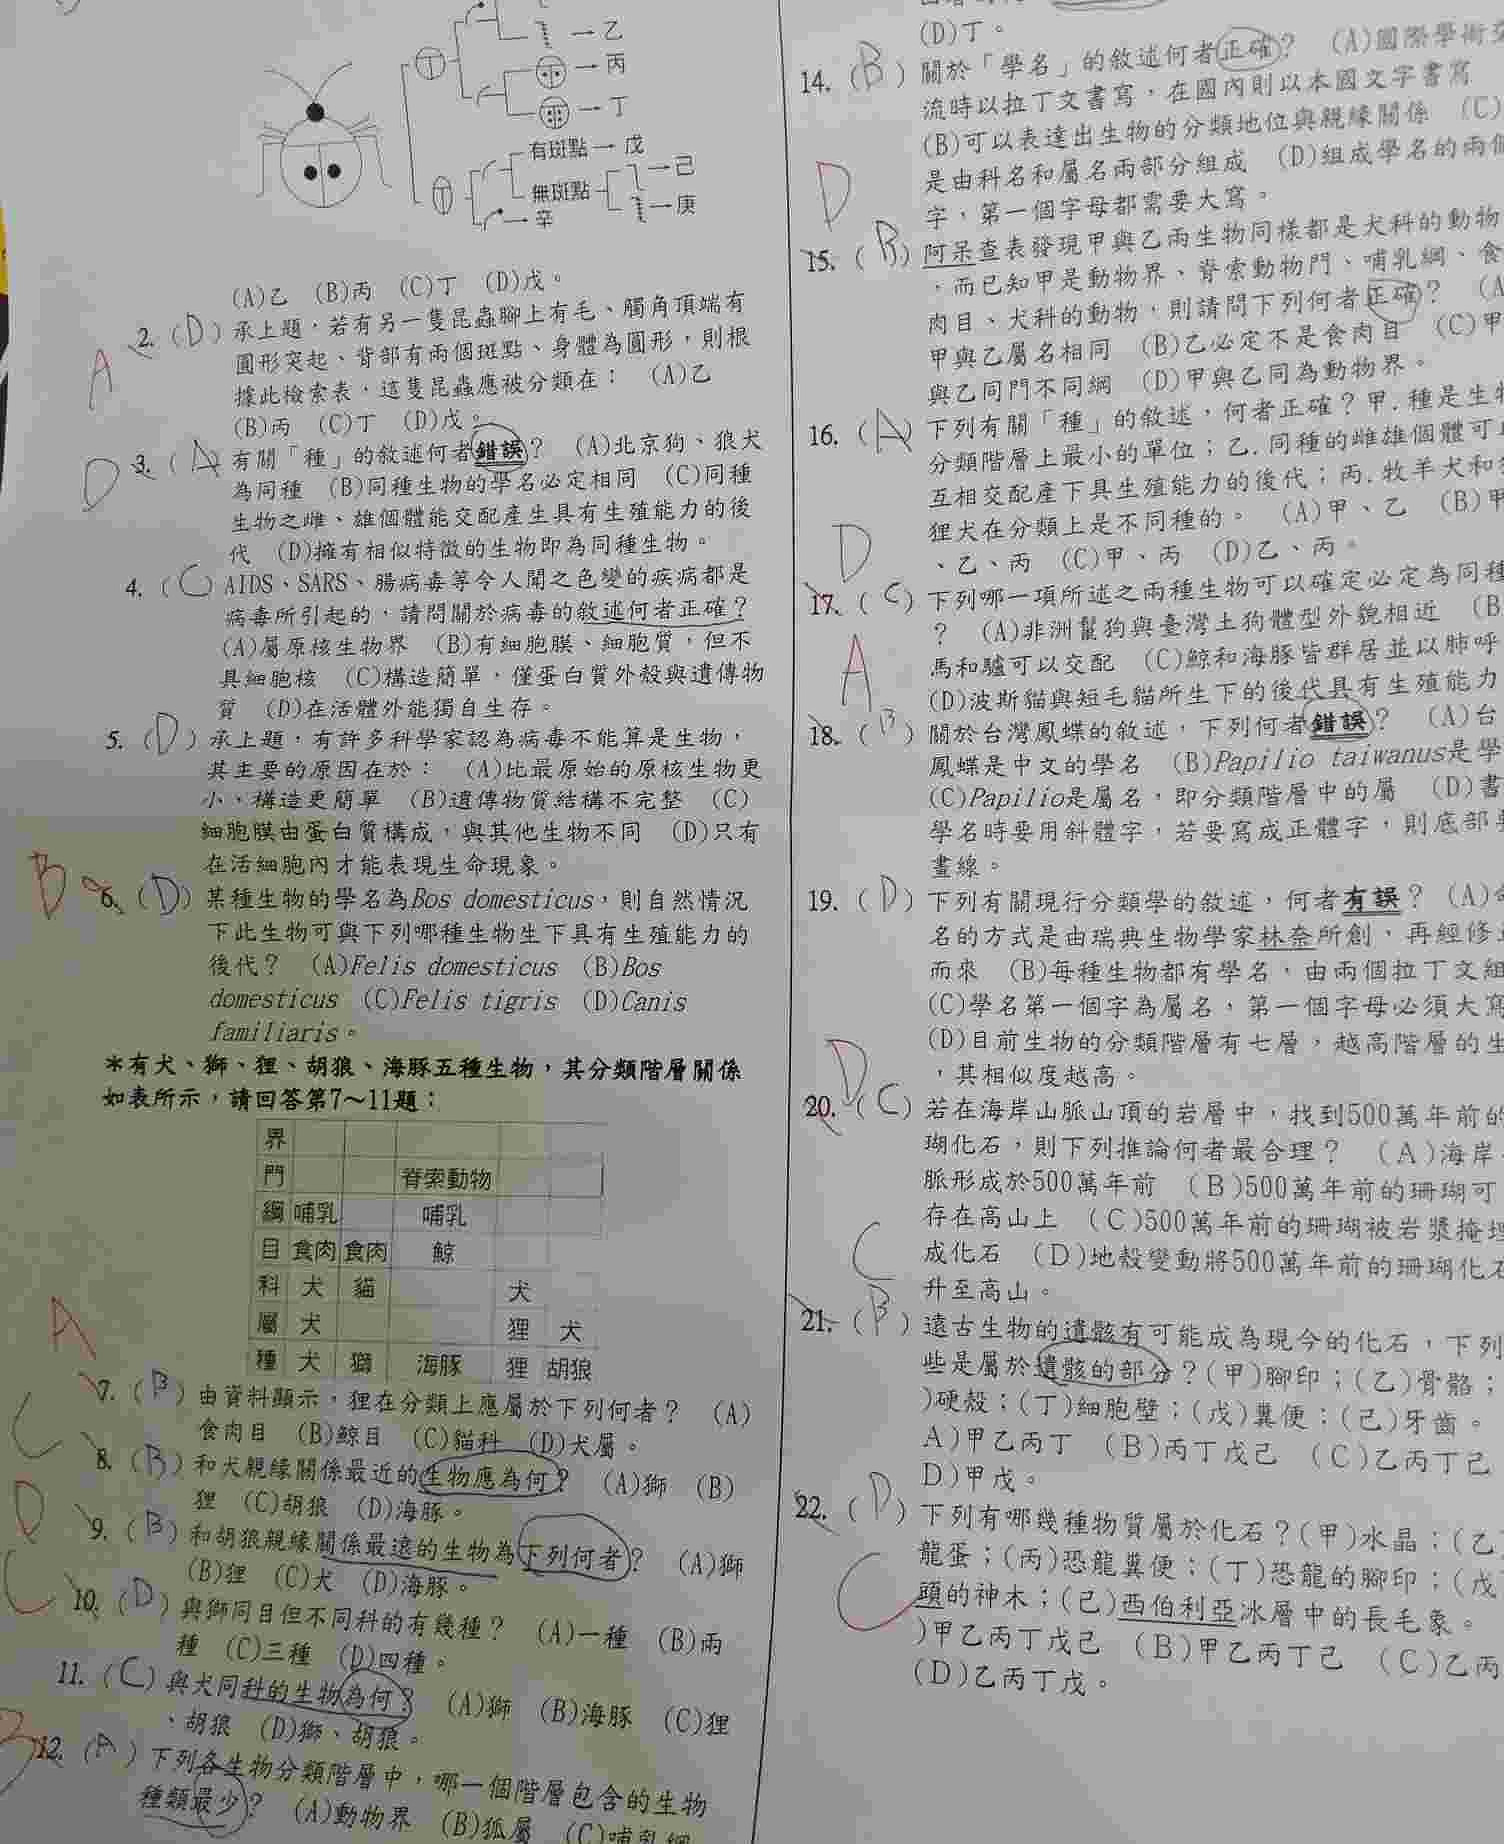 乙
丙
丁
有斑點 戊
無斑點 己
庚
辛
(A)乙 (B)丙 (C)丁 (D)戊。
A 2.(D)承上題，若有另一隻昆蟲腳上有毛、觸角頂端有
圓形突起、背部有兩個斑點、身體為圓形，則根
據此檢索表，這隻昆蟲應被分類在： (A)乙
(B)丙 (C)丁 (D)戊。
D 3.(A)有關「種」的敘述何者錯誤？ (A)北京狗、狼犬
為同種 (B)同種生物的學名必定相同 (C)同種
生物之雌、雄個體能交配產生具有生殖能力的後
代 (D)擁有相似特徵的生物即為同種生物。
4.(C)AIDS、SARS、腸病毒等令人聞之色變的疾病都是
病毒所引起的，請問關於病毒的敘述何者正確？
(A)屬原核生物界 (B)有細胞膜、細胞質，但不
具細胞核 (C)構造簡單，僅蛋白質外殼與遺傳物
質 (D)在活體外能獨自生存。
5.(D)承上題，有許多科學家認為病毒不能算是生物，
其主要的原因在於： (A)比最原始的原核生物更
小、構造更簡單 (B)遺傳物質結構不完整 (C)
細胞膜由蛋白質構成，與其他生物不同 (D)只有
在活細胞內才能表現生命現象。
B 6.(D)某種生物的學名為Bos domesticus，則自然情況
下此生物可與下列哪種生物生下具有生殖能力的
後代？ (A)Felis domesticus (B)Bos
domesticus (C)Felis tigris (D)Canis
familiaris。
＊有犬、獅、狸、胡狼、海豚五種生物，其分類階層關係
如表所示，請回答第7～11題：
界
門 脊索動物
綱 哺乳 哺乳
目 食肉 食肉 鯨
科 犬 貓 犬
屬 犬 狸 犬
種 犬 獅 海豚 狸 胡狼
A 7.(B)由資料顯示，狸在分類上應屬於下列何者？ (A)
食肉目 (B)鯨目 (C)貓科 (D)犬屬。
C 8.(B)和犬親緣關係最近的生物應為何？ (A)獅 (B)
狸 (C)胡狼 (D)海豚。
D 9.(B)和胡狼親緣關係最遠的生物為下列何者？ (A)獅
(B)狸 (C)犬 (D)海豚。
C 10.(D)與獅同目但不同科的有幾種？ (A)一種 (B)兩
種 (C)三種 (D)四種。
11.(C)與犬同科的生物為何？ (A)獅 (B)海豚 (C)狸
、胡狼 (D)獅、胡狼。
B 12.(A)下列各生物分類階層中，哪一個階層包含的生物
種類最少？ (A)動物界 (B)狐屬 (C)哺乳綱
(D)丁。
14.(B)關於「學名」的敘述何者正確？ (A)國際學術交
流時以拉丁文書寫，在國內則以本國文字書寫
(B)可以表達出生物的分類地位與親緣關係 (C)
是由科名和屬名兩部分組成 (D)組成學名的兩個
字，第一個字母都需要大寫。
D 15.(B)阿呆查表發現甲與乙兩生物同樣都是犬科的動物
，而已知甲是動物界、脊索動物門、哺乳綱、食
肉目、犬科的動物，則請問下列何者正確？ (A
甲與乙屬名相同 (B)乙必定不是食肉目 (C)甲
與乙同門不同綱 (D)甲與乙同為動物界。
16.(A)下列有關「種」的敘述，何者正確？甲.種是生物
分類階層上最小的單位；乙.同種的雌雄個體可
互相交配產下具生殖能力的後代；丙.牧羊犬和
狸犬在分類上是不同種的。 (A)甲、乙 (B)甲
、乙、丙 (C)甲、丙 (D)乙、丙。
D 17.(C)下列哪一項所述之兩種生物可以確定必定為同種
？ (A)非洲鬣狗與臺灣土狗體型外貌相近 (B
馬和驢可以交配 (C)鯨和海豚皆群居並以肺呼
(D)波斯貓與短毛貓所生下的後代具有生殖能力
A 18.(B)關於台灣鳳蝶的敘述，下列何者錯誤？ (A)台
鳳蝶是中文的學名 (B)Papilio taiwanus是學
(C)Papilio是屬名，即分類階層中的屬 (D)書
學名時要用斜體字，若要寫成正體字，則底部
畫線。
19.(D)下列有關現行分類學的敘述，何者有誤？ (A)
名的方式是由瑞典生物學家林奈所創，再經修
而來 (B)每種生物都有學名，由兩個拉丁文組
(C)學名第一個字為屬名，第一個字母必須大寫
(D)目前生物的分類階層有七層，越高階層的生
，其相似度越高。
D 20.(C)若在海岸山脈山頂的岩層中，找到500萬年前的
瑚化石，則下列推論何者最合理？ (A)海岸
脈形成於500萬年前 (B)500萬年前的珊瑚可
存在高山上 (C)500萬年前的珊瑚被岩漿掩埋
成化石 (D)地殼變動將500萬年前的珊瑚化石
升至高山。
C 21.(B)遠古生物的遺骸有可能成為現今的化石，下列
些是屬於遺骸的部分？(甲)腳印；(乙)骨骼；
)硬殼；(丁)細胞壁；(戊)糞便；(己)牙齒。
A)甲乙丙丁 (B)丙丁戊己 (C)乙丙丁己
D)甲戊。
C 22.(D)下列有哪幾種物質屬於化石？(甲)水晶；(乙
龍蛋；(丙)恐龍糞便；(丁)恐龍的腳印；(戊
頭的神木；(己)西伯利亞冰層中的長毛象。
)甲乙丙丁戊己 (B)甲乙丙丁己 (C)乙丙
(D)乙丙丁戊。